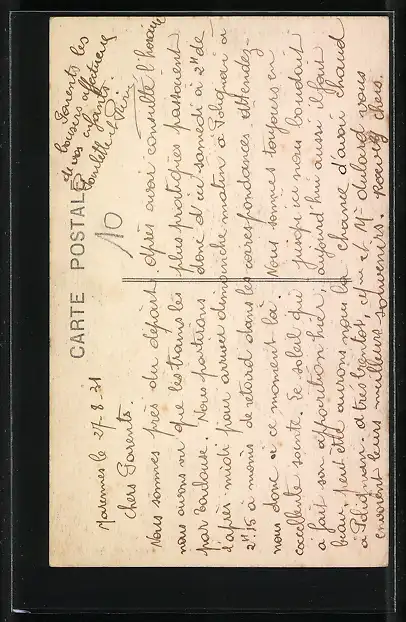 CARTE POSTALE
10
Marennes le 27-8-31
Chers Parents.
Nous sommes près du départ. Après avoir consulté l'horaire
nous avons vu que les trains les plus pratiques passaient
par Toulouse. Nous partirons donc d'ici samedi à 2H de
l'après midi pour arriver dimanche matin à Polignan à
2H15 à moins de retard dans les correspondances. Attendez-
nous donc à ce moment là. Nous sommes toujours en
excellente santé. Le soleil qui jusqu'ici nous boudait
a fait son apparition hier, aujourd'hui aussi il fait
beau, peut être aurons nous la chance d'avoir chaud
à Polignan. A très bientôt, et Mr vous
envoient leurs meilleurs souvenirs. bers.
Parents les
bousers affectueux
de vos enfants
et